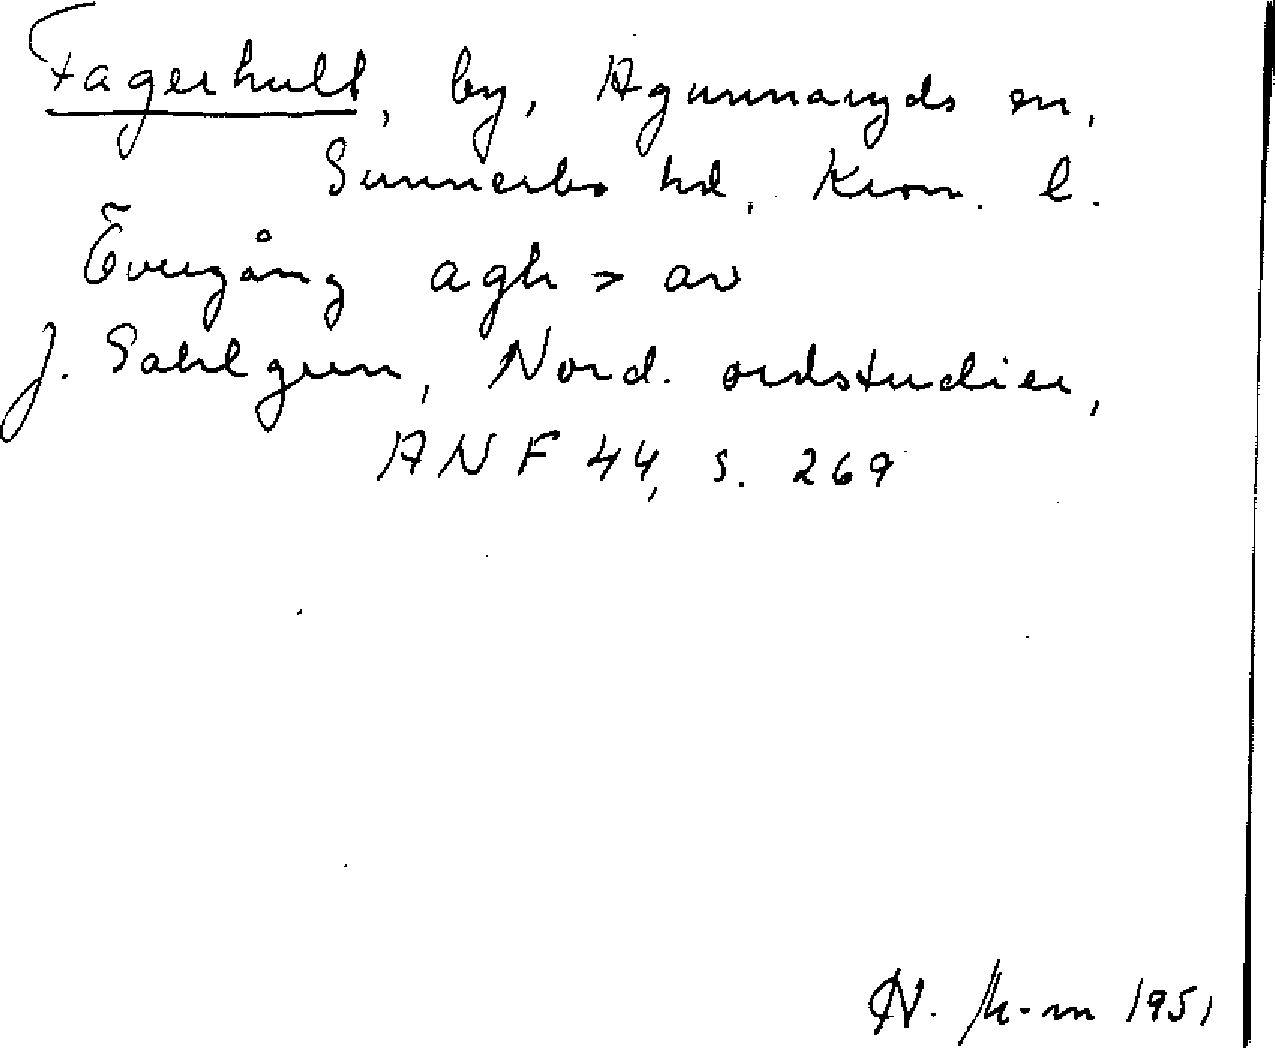 Fagerhult, by, Agunnaryds sn,
Sunnerbo hd, Kron. l.
Övergång agh > av
J. Sahlgren, Nord. ordstudier,
ANF 44, s. 269
1951